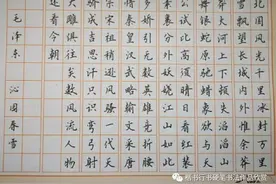 北国风光千里冰封万里
雪飘望长城内外惟余莽
莽大河上下顿失滔滔山
舞银蛇原驰蜡象欲与天
公试比高须晴日看红装
素裹分外妖娆江山如此
多娇引无数英雄竞折腰
惜秦皇汉武略输文采唐
宗宋祖稍逊风骚一代天
骄成吉思汗只识弯弓射
大雕俱往矣数风流人物
还看今朝
毛泽东 沁园春雪
楷书行书硬笔书法作品欣赏